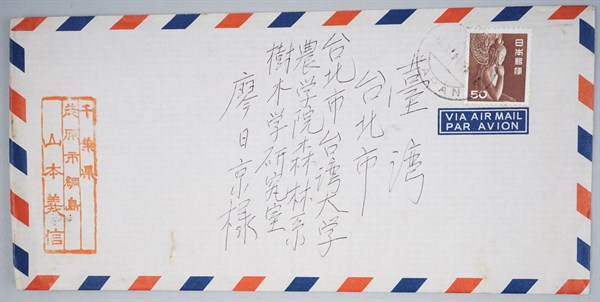 臺湾
台北市
台北市台湾大学
農学院森林系
樹木学研究室
廖日京様
日本郵便
50
VIA AIR MAIL
PAR AVION
千葉県
茂原市網島
山本義信